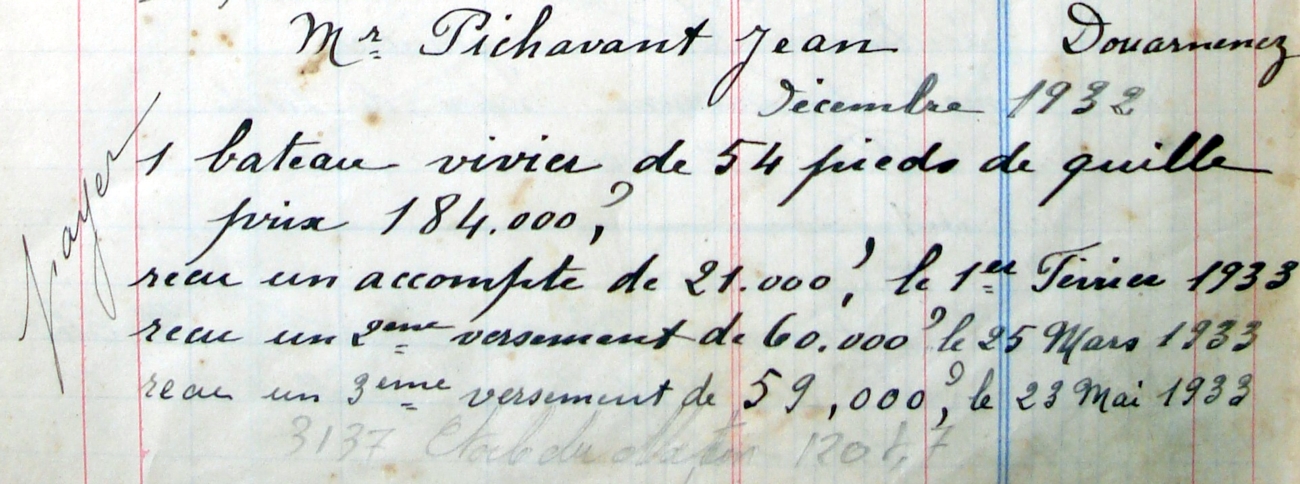 Mr Pichavant Jean Douarnenez
Décembre 1932
1 bateau vivier de 54 pieds de quille
prix 184.000,
recu un accompte de 21.000, le 1er Février 1933
recu un 2eme versement de 60.000 le 25 Mars 1933
recu un 3eme versement de 59,000, le 23 Mai 1933
3137
payer